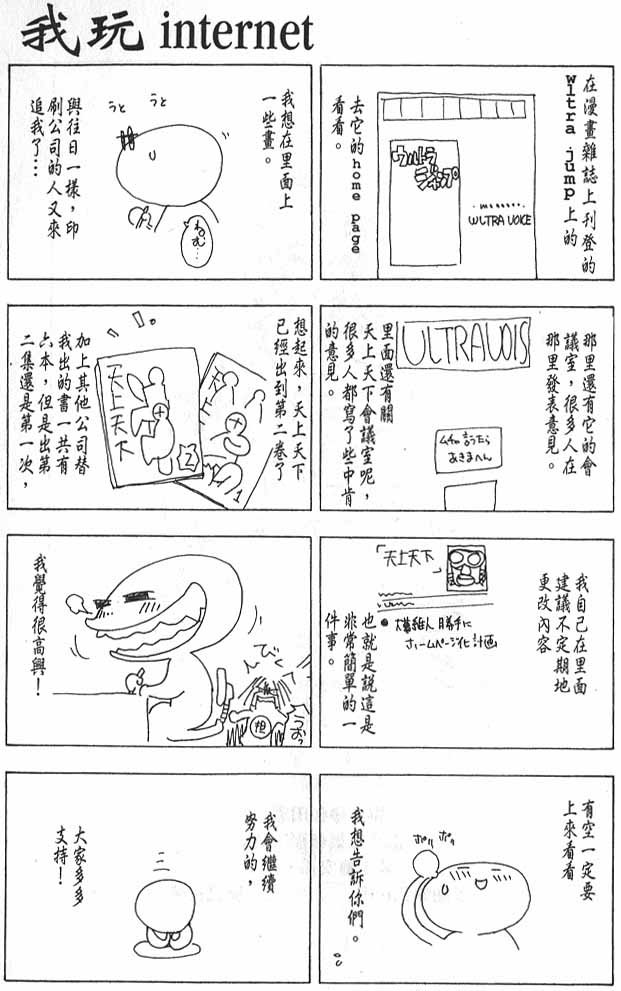 我玩 internet
在漫畫雜誌上刊登的
wltra jump上的
ウルトラ
ジャンプ
WLTRA VOICE
去它的home page
看看。
那里還有它的會
議室，很多人在
那里發表意見。
ULTRAVOIS
里面還有關
天上天下會議室呢，
很多人都寫了些中肯
的意見。
言うたら
あきまへん
我自己在里面
建議不定期地
更改內容
「天上天下」
大暮維人 勝手に
ホームページ化計画
也就是說這是
非常簡單的一
件事。
有空一定要
上來看看
ポリ
ポリ
我想告訴你們。
我想在里面上
一些畫。
うと
うと
ねむ…
與往日一樣，印
刷公司的人又來
追我了…
想起來，天上天下
已經出到第二卷了
天上天下
2
天上
1
加上其他公司替
我出的書一共有
六本，但是出第
二集還是第一次，
我覺得很高興！
んびく
担
うおっ
我會繼續
努力的，
大家多多
支持！